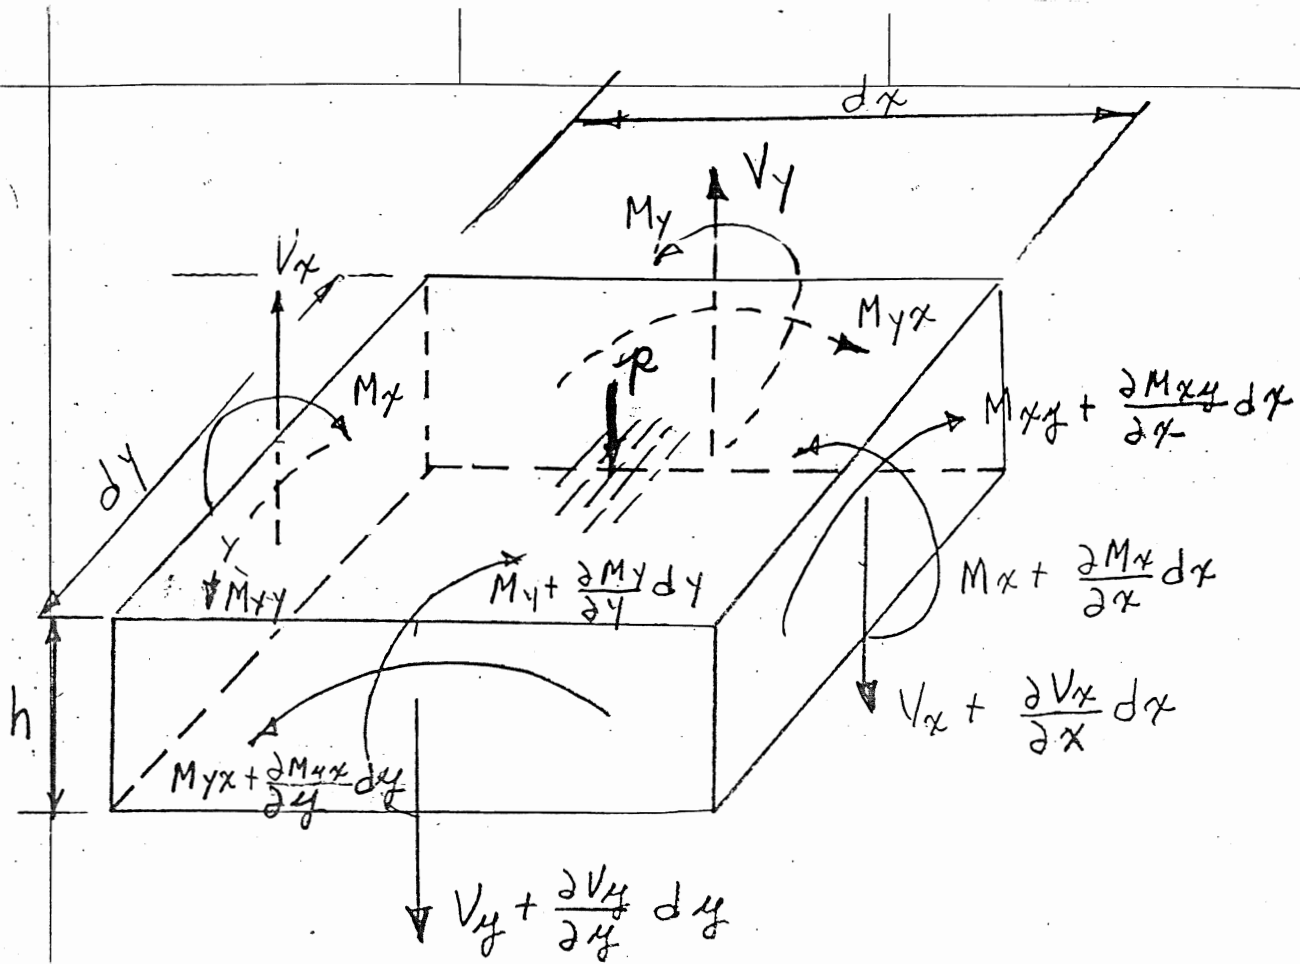 dx
Vy
My
Vx
Myx
p
Mx
Mxy + ∂Mxy/∂x dx
dy
My + ∂My/∂y dy
Mx + ∂Mx/∂x dx
Mxy
h
Vx + ∂Vx/∂x dx
Myx + ∂Myx/∂y dy
Vy + ∂Vy/∂y dy